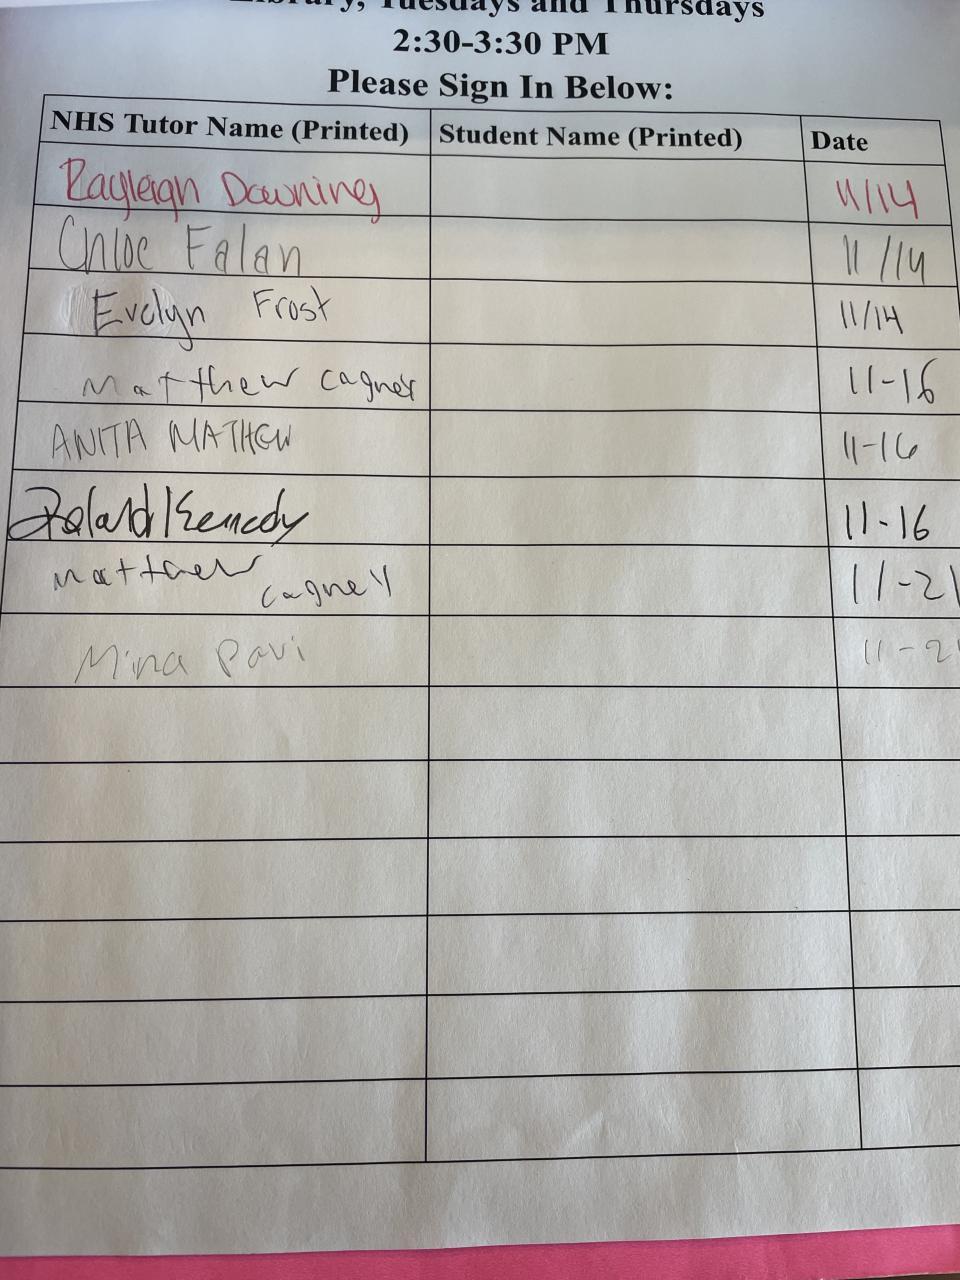 Library, Tuesdays and Thursdays
2:30-3:30 PM
Please Sign In Below:
NHS Tutor Name (Printed) Student Name (Printed) Date
Rayleigh Downing 11/14
Chloe Falan 11/14
Evelyn Frost 11/14
Matthew Cagney 11-16
ANITA MATHEW 11-16
Roland Kennedy 11-16
Matthew Cagney 11-21
Mina Pavi 11-2